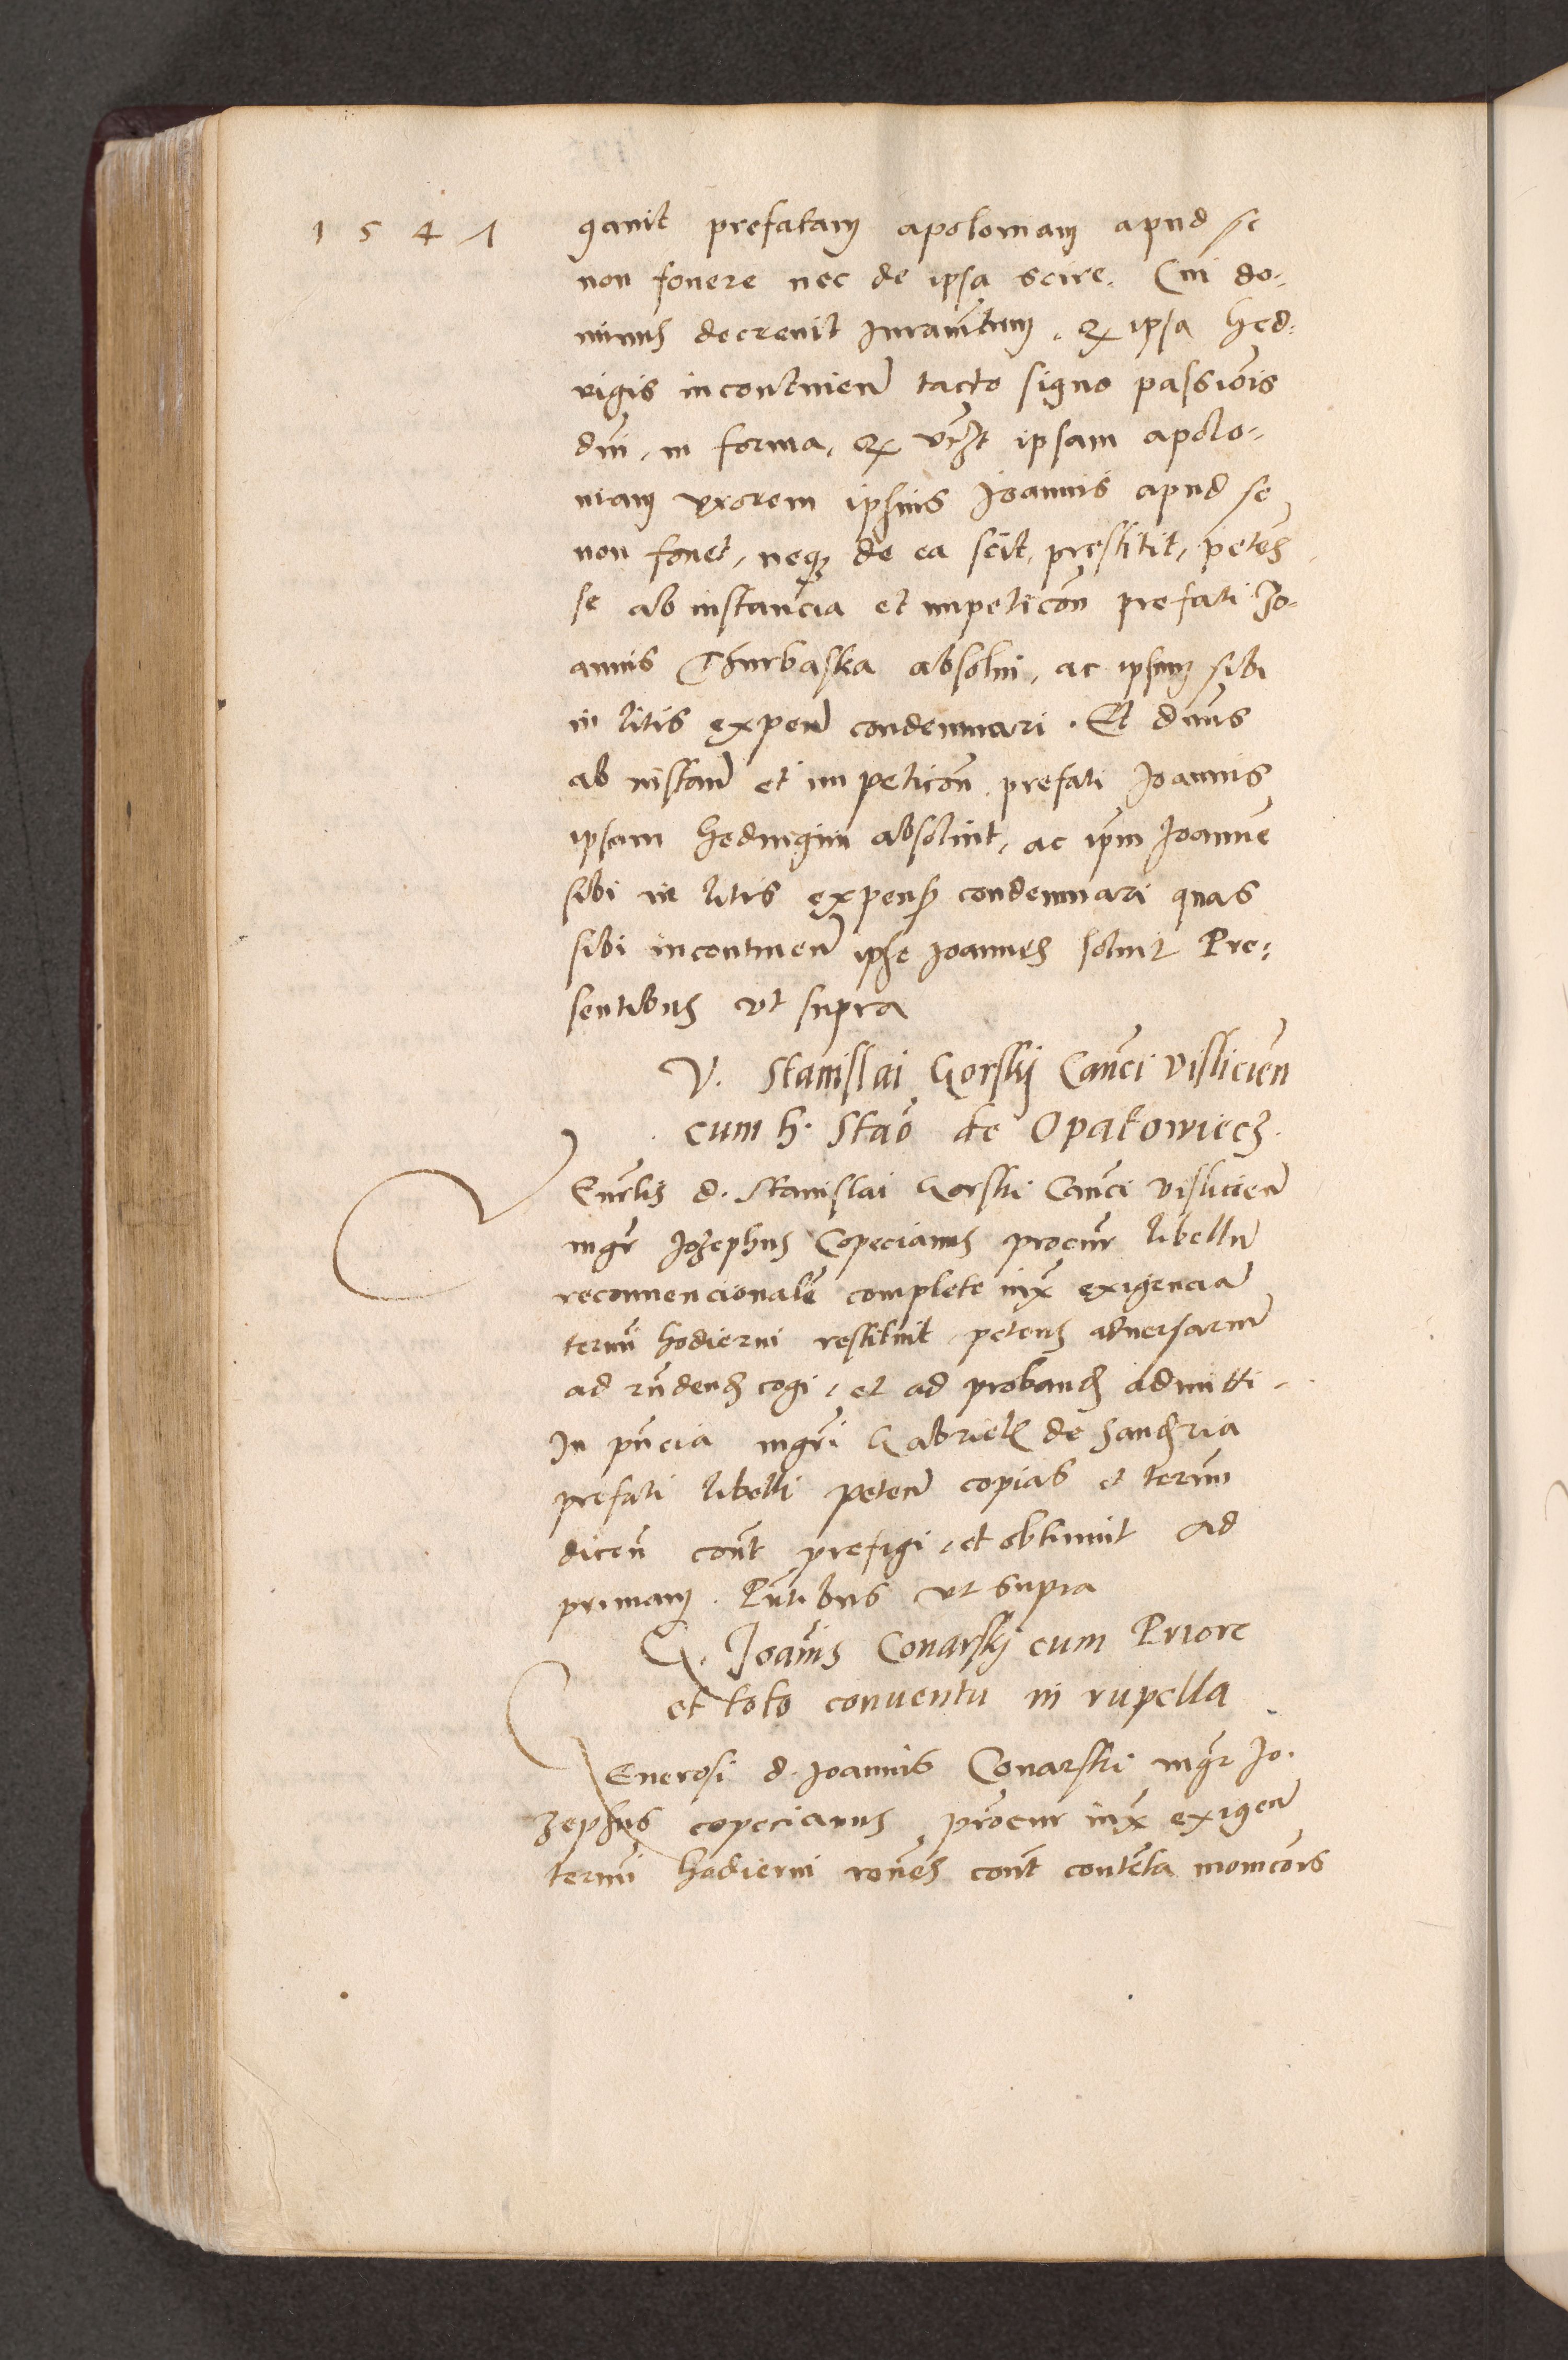 1541
gauit prefatam apoloniam apud se
non fouere nec de ipsa scire. Cui do-
minus decreuit Juramtum, quod ipsa Hed-
vigis incontinen tacto signo passiois
dni, in forma, quod videlicet ipsam apolo-
niam vxorem ipsius Joannis apud se
non fouet, neque de ea scit, prestitit, petens
se ab instancia et impeticon prefati Jo-
annis Churbaska absolui, ac ipsum sibi
in litis expen condemnari. Et dnus
ab instan et impeticon prefati Joannis
ipsam Heduigim absoluit, ac ipm Joannem
sibi in litis expens condemnari quas
sibi incontinen ipse Joannes soluit Pre-
sentibus vt supra
V. Stanislai Gorskij Canci Vislicien
cum h. Stao de Opatowiecz.
Venerlis d. Stanislai Gorski Canci Vislicien
mgr Jozephus Copecianus procur libellum
reconuencionale complete iux exigencia
termi hodierni restituit, petens aduersariu
ad rndend cogi, et ad proband admitti.
In pncia mgri Gabriel de Sandria
prefati libelli peten copias et termi
dicen cont prefigi, et obtinuit Ad
primam. Pntibus vt supra
G. Joanis Conarskij cum Priore
et toto conuentu in rupella
Generosi d. Joannis Conarski mgr Jo-
zephus copecianus procur iux exigen
termi hodierni rones cont contenta monicois